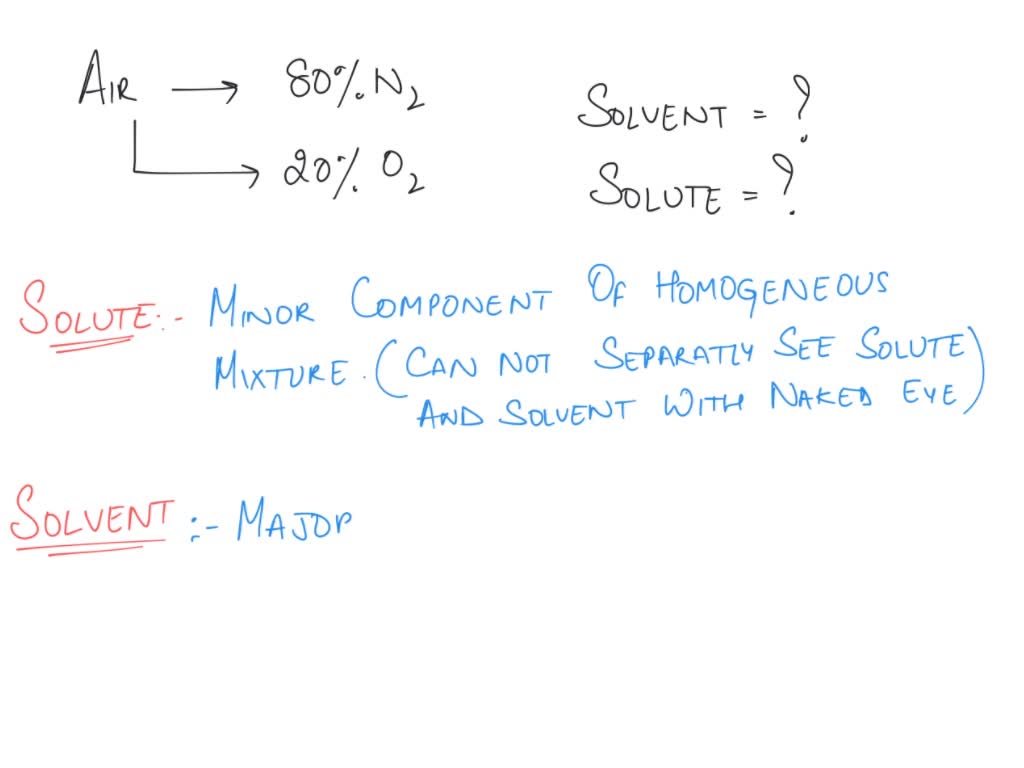 AIR → 80% N₂
→ 20% O₂
SOLVENT = ?
SOLUTE = ?
SOLUTE:- MINOR COMPONENT OF HOMOGENEOUS
MIXTURE. (CAN NOT SEPARATLY SEE SOLUTE
AND SOLVENT WITH NAKED EYE)
SOLVENT :- MAJOR